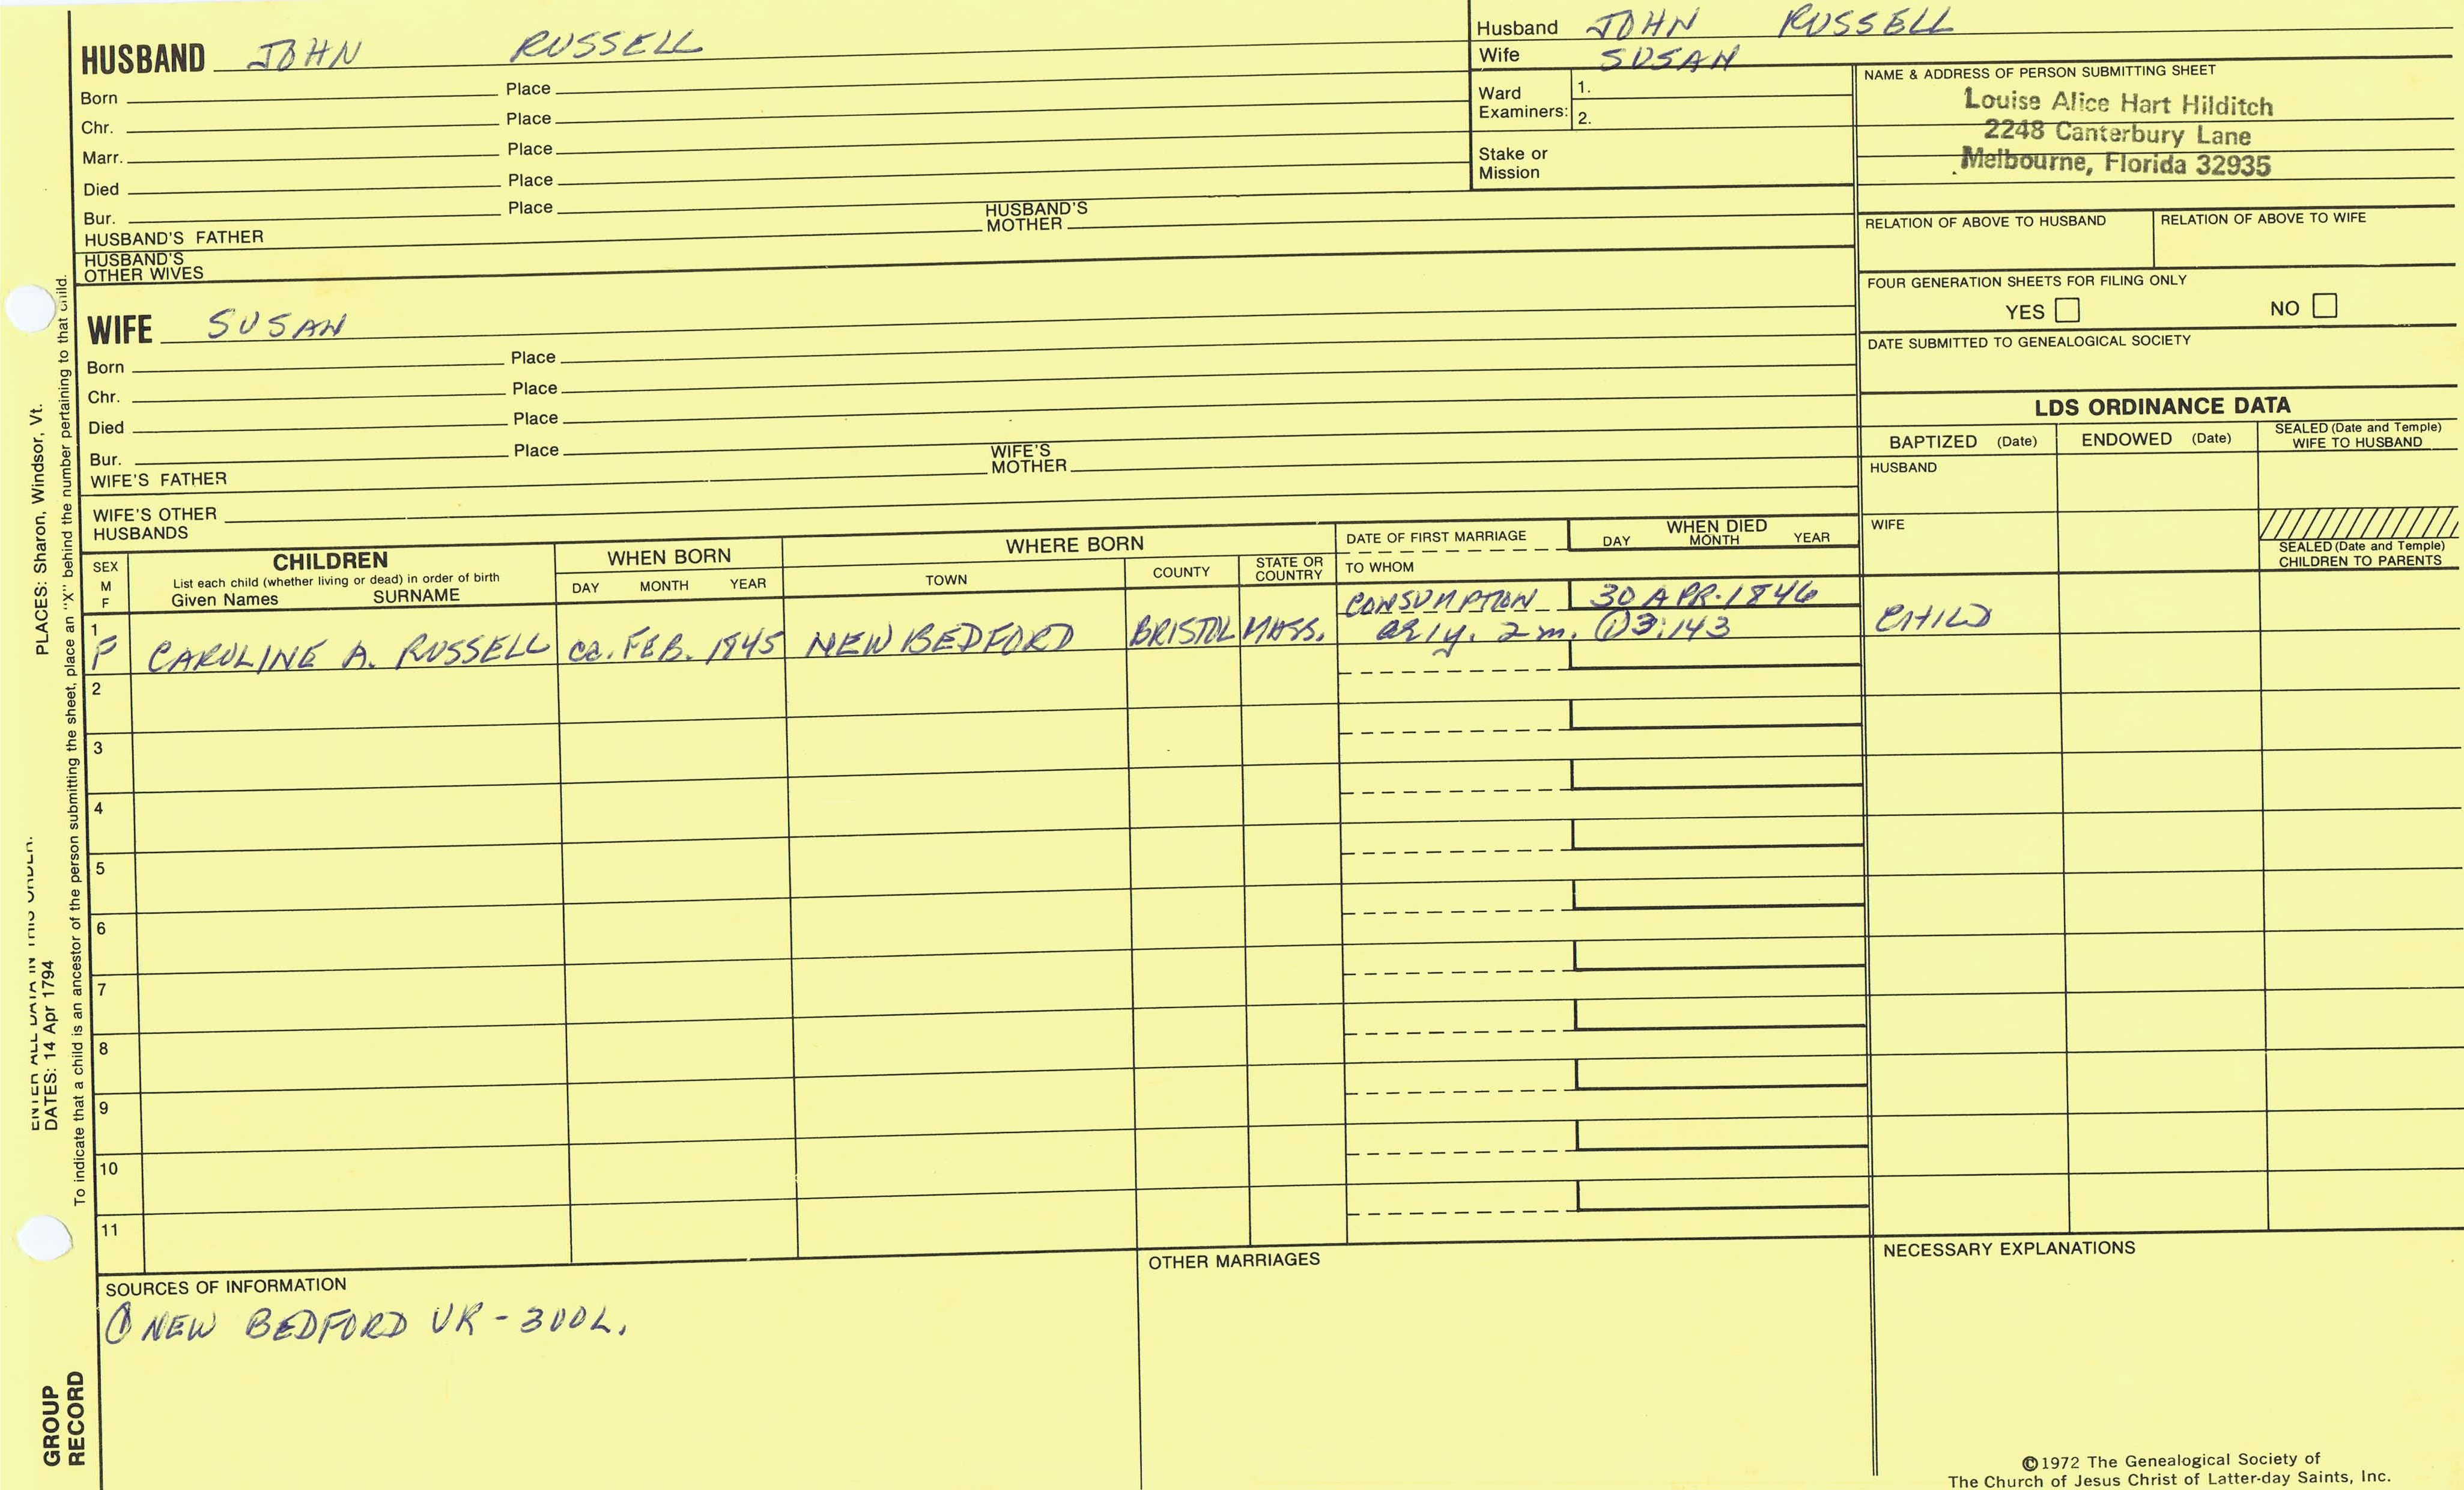 HUSBAND JOHN RUSSELL
Born Place
Chr. Place
Marr. Place
Died Place
Bur. Place
HUSBAND'S FATHER HUSBAND'S MOTHER
HUSBAND'S OTHER WIVES
WIFE SUSAN
Born Place
Chr. Place
Died Place
Bur. Place
WIFE'S FATHER WIFE'S MOTHER
WIFE'S OTHER HUSBANDS
Husband JOHN RUSSELL
Wife SUSAN
Ward Examiners: 1.
2.
Stake or Mission
NAME & ADDRESS OF PERSON SUBMITTING SHEET
Louise Alice Hart Hilditch
2248 Canterbury Lane
Melbourne, Florida 32935
RELATION OF ABOVE TO HUSBAND RELATION OF ABOVE TO WIFE
FOUR GENERATION SHEETS FOR FILING ONLY
YES NO
DATE SUBMITTED TO GENEALOGICAL SOCIETY
LDS ORDINANCE DATA
BAPTIZED (Date) ENDOWED (Date) SEALED (Date and Temple) WIFE TO HUSBAND
HUSBAND
WIFE
SEALED (Date and Temple) CHILDREN TO PARENTS
SEX M F
CHILDREN
List each child (whether living or dead) in order of birth
Given Names SURNAME
WHEN BORN
DAY MONTH YEAR
WHERE BORN
TOWN COUNTY STATE OR COUNTRY
DATE OF FIRST MARRIAGE
TO WHOM
WHEN DIED
DAY MONTH YEAR
CONSUMPTION 30 APR. 1846
1 F CAROLINE A. RUSSELL ca. FEB. 1845 NEW BEDFORD BRISTOL MASS. 1y. 2m. ① 3:143 CHILD
2
3
4
5
6
7
8
9
10
11
SOURCES OF INFORMATION
① NEW BEDFORD VR-
OTHER MARRIAGES
NECESSARY EXPLANATIONS
©1972 The Genealogical Society of
The Church of Jesus Christ of Latter-day Saints, Inc.
PLACES: Sharon, Windsor, Vt.
ENTER ALL DATA IN THIS ORDER:
DATES: 14 Apr 1794
To indicate that a child is an ancestor of the person submitting the sheet, place an "X" behind the number pertaining to that child.
GROUP
RECORD